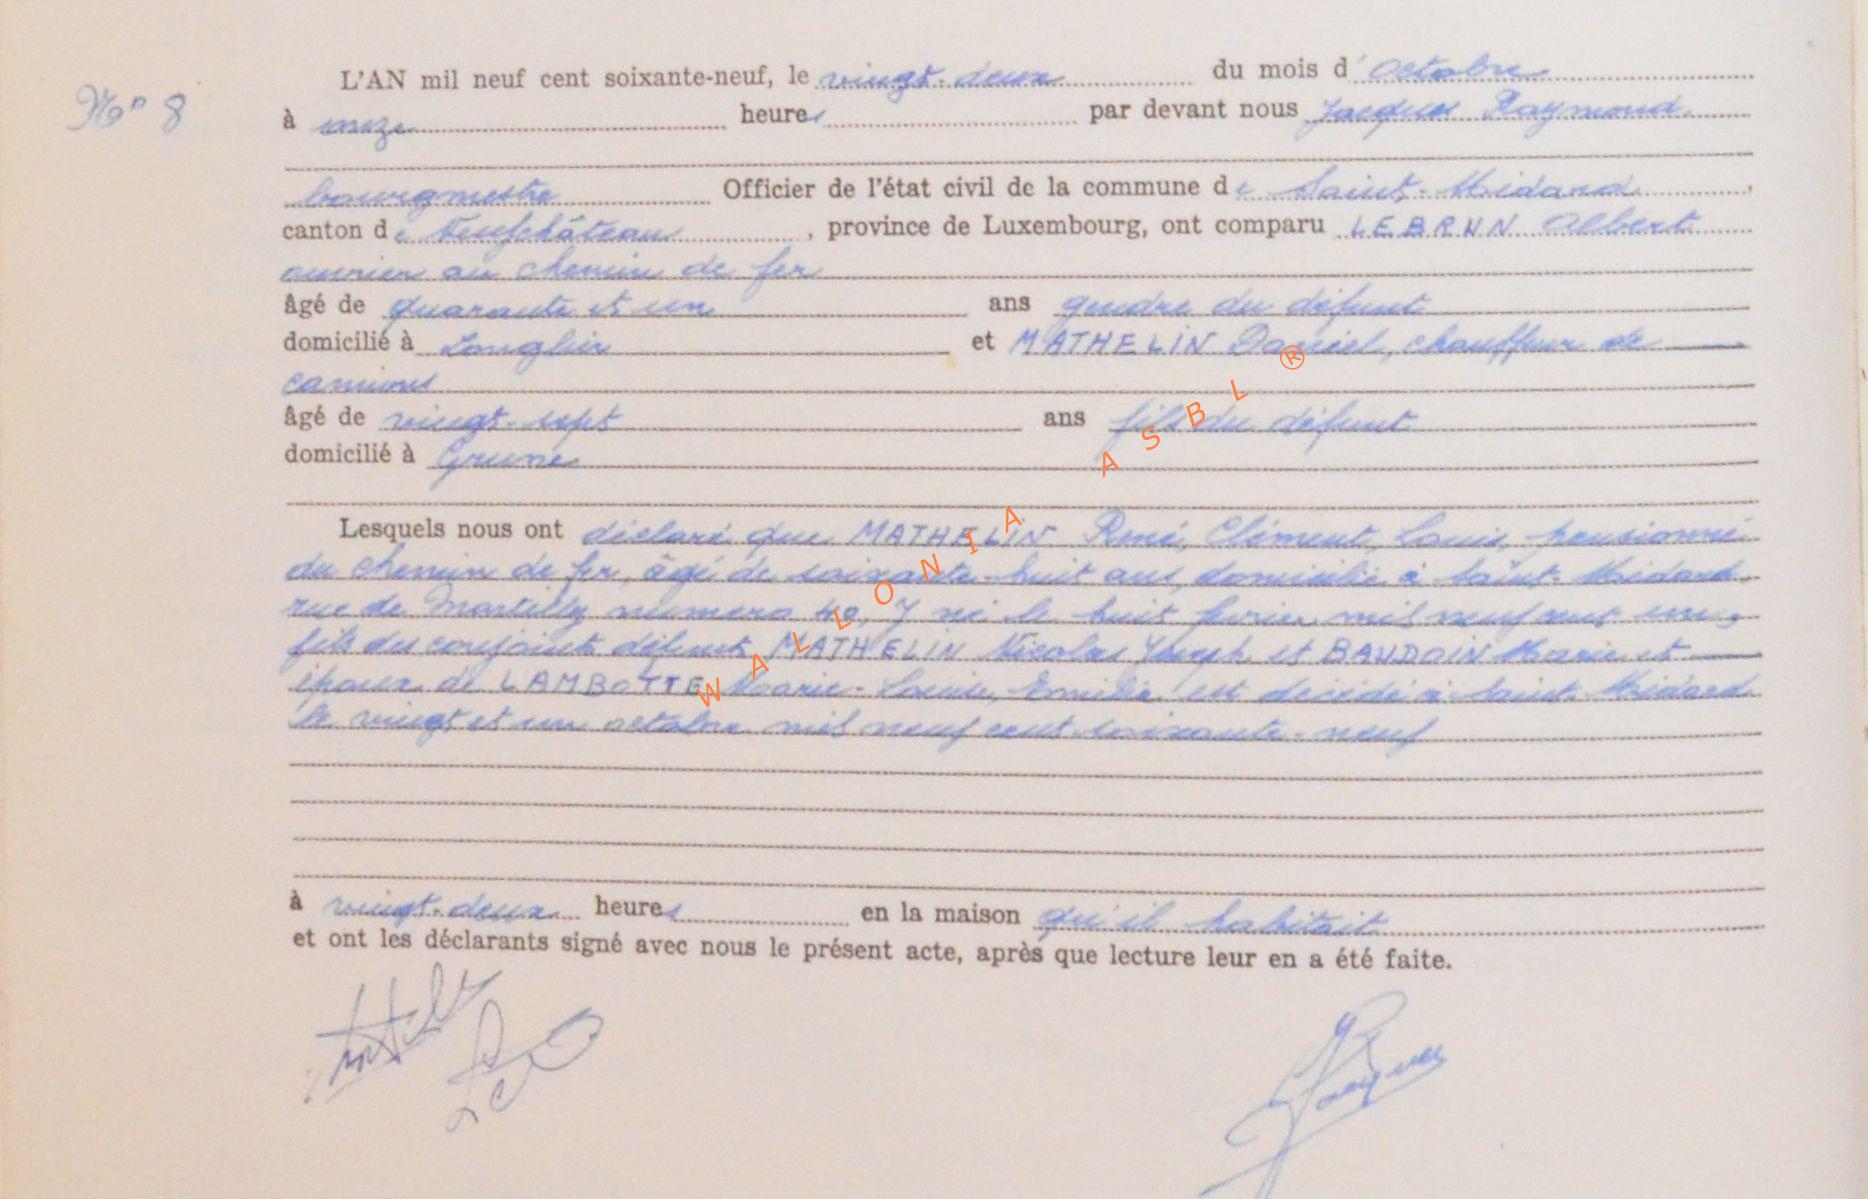 N° 8
L'AN mil neuf cent soixante-neuf, le vingt-deux du mois d'Octobre
à onze heures par devant nous Jacques Raymond
bourgmestre Officier de l'état civil de la commune de Saint-Médard,
canton de Neufchâteau, province de Luxembourg, ont comparu LEBRUN Albert
ouvrier au chemin de fer
âgé de quarante et un ans gendre du défunt
domicilié à Longlier et MATHELIN Daniel, chauffeur de
camions
âgé de vingt-sept ans fils du défunt
domicilié à Grune
Lesquels nous ont déclaré que MATHELIN René, Clément, Louis, pensionné
du chemin de fer, âgé de soixante-huit ans, domicilié à Saint-Médard,
rue de Martilly numéro 40, né le huit février mil neuf cent un,
fils des conjoints défunts MATHELIN Nicolas Joseph et BAUDOIN Marie et
époux de LAMBOTTE Marie-Louise, Emilie est décédé à Saint-Médard
le vingt et un octobre mil neuf cent soixante-neuf
à vingt-deux heures en la maison qu'il habitait
et ont les déclarants signé avec nous le présent acte, après que lecture leur en a été faite.
Jacques
WALLONIA ASBL ®